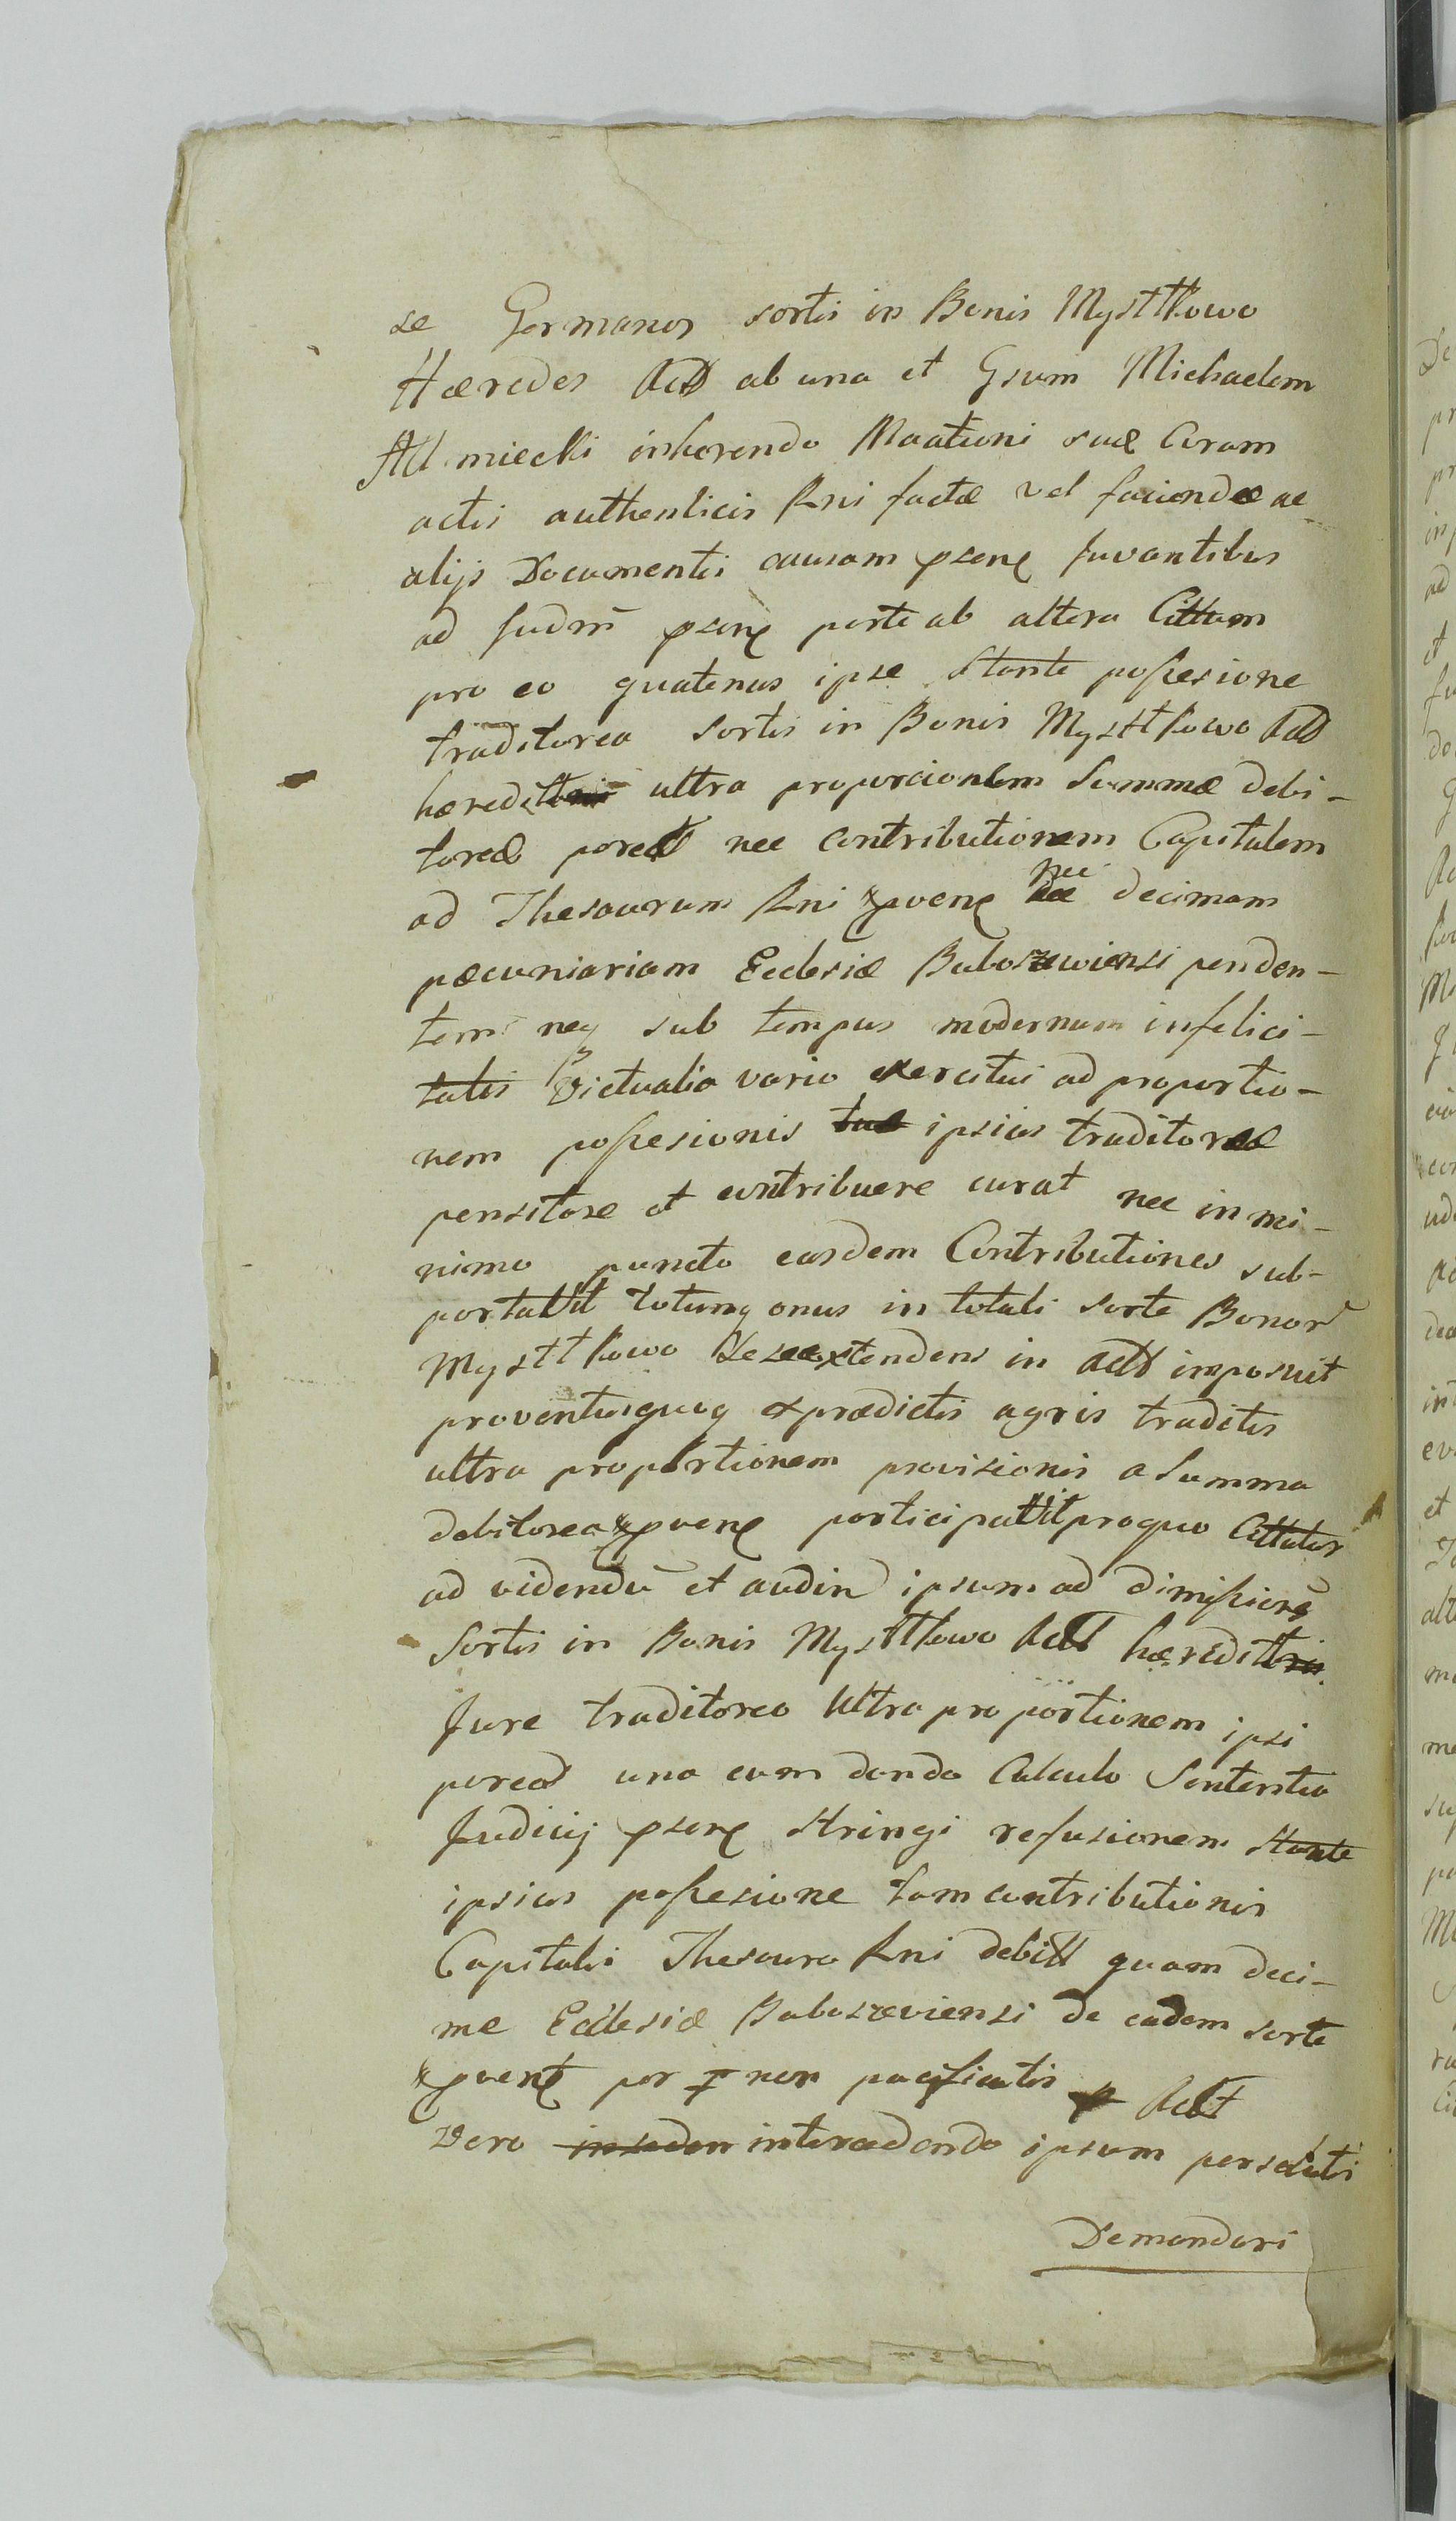 se Germanos sortis in Bonis Mysttkowo
Hæredes Actt ab una et Gsum Michaelem
miecki inherendo Maationi suæ Coram
actis authenticis Rni factæ vel faciendæ ac
alijs Documentis causam psenę Juvantibus
ad Judm psenę parte ab altera Cittum
pro eo quatenus ipse Stante possesione
traditorea sortis in Bonis Mysttkowo Actt
hæreditt ultra proporcionem Summæ debi-
toreæ nec contributionem Capitalem
ad Thesaurum Rni pvenę nec decimam
pæcuniariam Ecclesiæ Baboszewiensi penden-
tem neq sub tempus modernum infelici-
tatis Victualia vario exercitui ad proportio-
nem possesionis ipsius traditoreæ
pensitare et contribuere curat nec in mi-
nimo puncto easdem Contributiones sub-
portavit totumq onus in totali sorte Bonor
Mysttkowo se extendens in Actt imposuit
proventusquoq ex prædictis agris traditis
ultra proportionem provisionis a Summa
debitorea pvenę participavit pro quo Cittatur
ad videndũ et audin ipsum ad dimissionę
Sortis in Bonis Mysttkowo Actt hæreditt
Jure traditoreo Ultra proportionem ipsi
una cum dando Calculo Sententia
Judicij psenę Stringi refusionem Stante
ipsius possesione tam contributionis
Capitalis Thesauro Rni debitt quam deci-
me Ecclesiæ Baboszeviensi de eadem sorte
pvent per non pacificatis Actt
vero intercedendo ipsum persoluti
Demandari